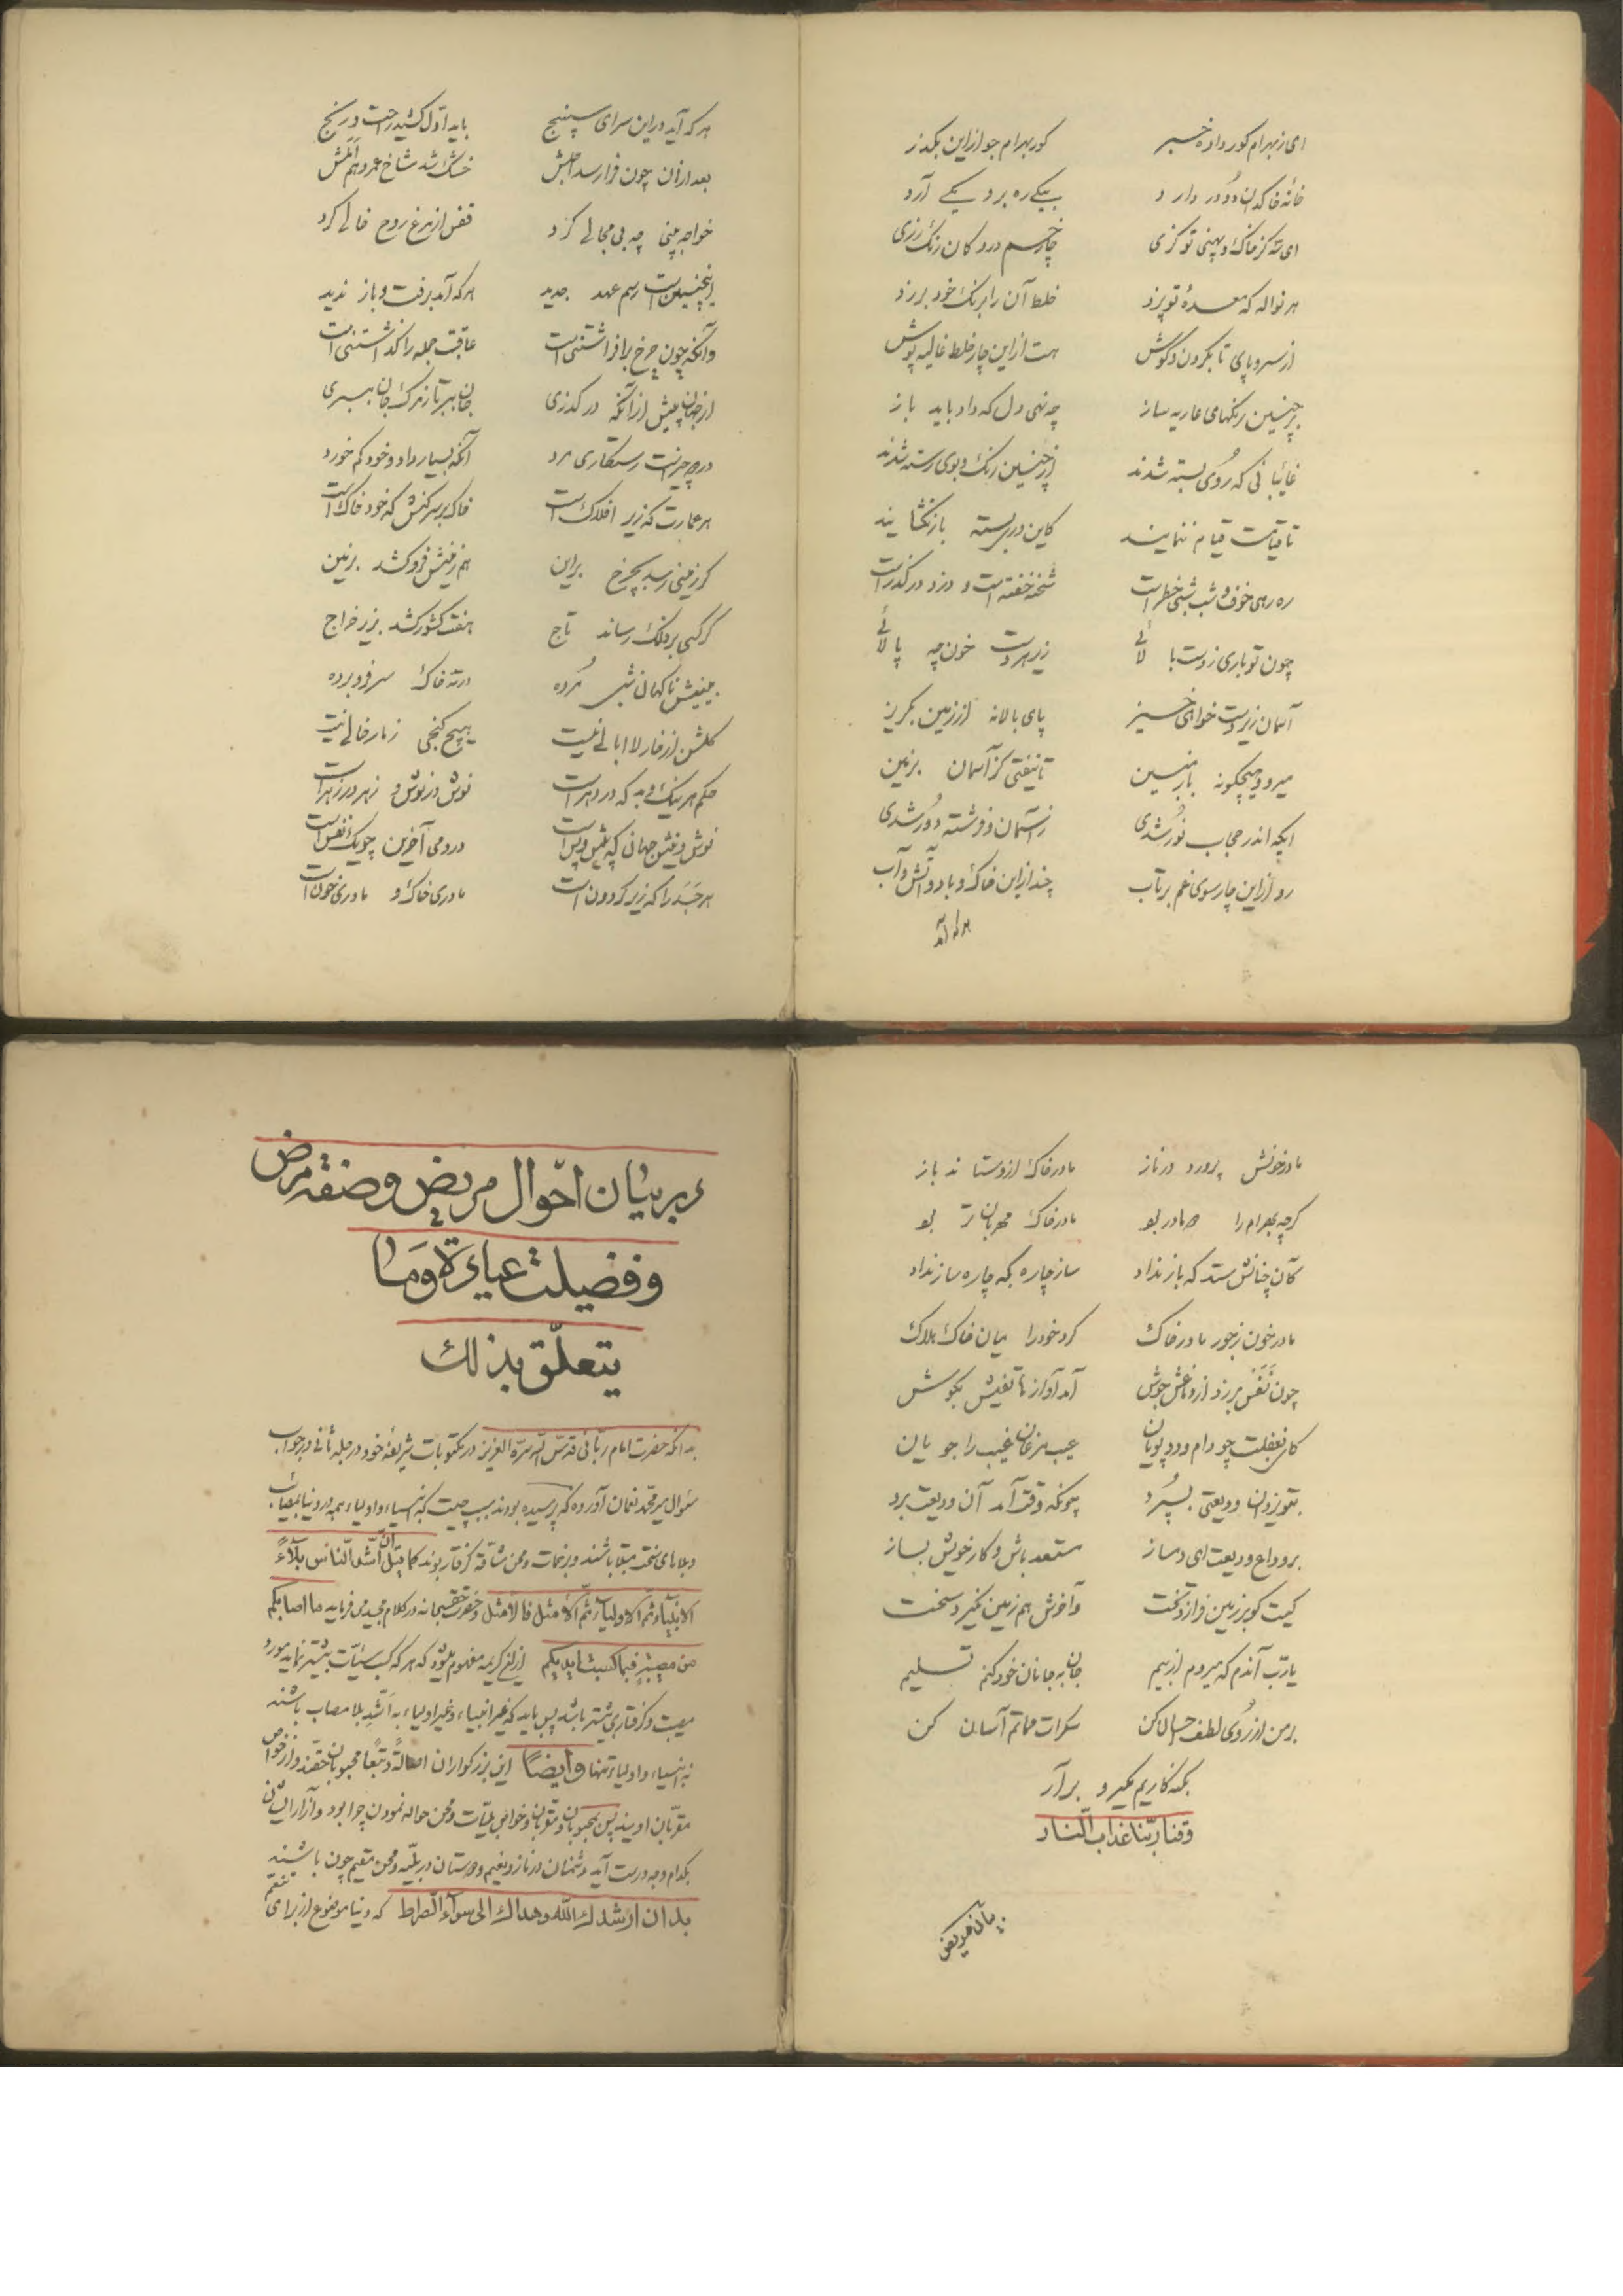 ای ز بهرام کور داده خبر کور بهرام جو ازین بکذر
خانهٔ خاکدان دو در دارد بیکی ره برد یکی آرد
ای سه کز خاک و پهنی تو کزی چار خم در دکان رنک رزی
هر نواله که معدهٔ تو پزد خلط آن را برنک خود برزد
از سر و پای تا بکردن و کوش هست ازاین چار خلط غالیه پوش
بر چنین رنکهای عاریه ساز چه نهی دل که داد باید باز
غایبانی که روی بسته شدند از چنین رنک و بوی رسته شدند
تا قیامت قیام ننمایند کاین در بسته باز نکشایند
ره رهی خوف و شب شبی خطر است شحنه خفته است و دزد درکذر است
چون تو باری ز دست بالائی زیر هر دست خون چه پالائی
آسمان زیر دست خواهی خیز پای بالا نه از زمین بکریز
میرو و هیچکونه باز مبین تا نیفتی کز آسمان بزمین
ایکه اندر حجاب نور شدی ز آسمان و فرشته دور شدی
رو ازاین چارسوی غم برتاب چند ازاین خاک و باد و آتش و آب
هر که آمد
هر که آید دراین سرای سپنج باید اول کشید راحت و رنج
بعد ازان چون فرا رسد اجلش خشک شد شاخ عمر و هم املش
خواجه بینی چه بی مجالی کرد قفس از مرغ روح خالی کرد
اینچنین است رسم عهد جدید هر که آمد برفت و باز ندید
وآنکه چون چرخ برافراشتنی است عاقبت جمله را کذاشتنی است
از جهان پیش ازآنکه درکذری جان ببر تا ز مرک جان ببری
در دو چیز است رستکاری مرد آنکه بسیار داد و خود کم خورد
هر عمارت که زیر افلاک است خاک بر سر کنش که خود خاک است
کر زمینی رسد بچرخ برین هم زمینش فرو کشد بزمین
کر کسی بر فلک رساند تاج هفت کشور کشد بزیر خراج
بینیش ناکهان شبی مرده در ته خاک سر فرو برده
کلشن از خار لاابالی نیست هیچ کنجی ز مار خالی نیست
حکم هر نیک و بد که در دهر است نوش در نوش و زهر در زهر است
نوش و نیش جهان که پیش و پس است در دمی آخرین چو یک نفس است
هر جسد را که زیر کردون است مادری خاک و مادری خون است
مادر خونش پرورد در ناز مادر خاک ازو ستاند باز
کرچه بهرام را دو مادر بود مادر خاک مهربان تر بود
کان چنانش ستد که باز نداد ساز چاره بکه چاره ساز نداد
مادر خون ز جور مادر خاک کرد خود را میان خاک هلاک
چون نفس برزد از دماغش جوش آمد آواز هاتفیش بکوش
کای بغفلت چو دام و دد پویان عیب مرغان غیب را جویان
بتو یزدان ودیعتی بسپرد چونکه وقت آمد آن ودیعت برد
بر وداع ودیعت ای دمساز مستعد باش و کار خویش بساز
کیست کو بر زمین فرازد تخت وآخرش هم زمین نکیرد سخت
یارب آندم که میروم از بیم جان به جانان خود کنم تسلیم
بر من از روی لطف حالا کن سکرات مماتم آسان کن
بکنه کاریم مکیر و برآر
وقنا ربنا عذاب النار
بیان مریض
در بیان احوال مریض و صفة مرض
و فضیلت عیادة و ما
یتعلق بذلك
بدانکه حضرت امام ربانی قدس الله سره العزیز در مکتوبات شریفهٔ خود در جلد ثانی در جواب
سئوال میر محمد نعمان آورده که پرسیده بودند سبب چیست که انبیاء و اولیاء همه در دنیا بمصائب
و بلاهای سخت مبتلا باشند و بزحمات و محن شاقه کرفتار بوند کما قیل ان اشد الناس بلآءً
الانبیآء ثم الاولیآء ثم الامثل فالامثل و حضرت حق سبحانه در کلام مجید می فرماید ما اصابکم
من مصیبة فبما کسبت ایدیکم ازین کریمه مفهوم میشود که هر که کسب سیئات بیشتر نماید مورد
مصیبت و کرفتاری بیشتر باشد پس باید که غیر انبیاء و غیر اولیاء به اشد بلا مصاب باشند
نه انبیاء و اولیاء تنها وایضاً این بزرکواران اصالةً و تبعاً محبوبان حقند و از خواص
مقربان اویند پس بمحبوبان و مقربان و خواص بلیات و محن حواله نمودن چرا بود و آزار ایشان
بکدام وجه درست آید دشمنان در ناز و نعیم و دوستان در بلیه و محن مقیم چون باشند
بدان ارشدك الله و هداك الی سوآء الصراط که دنیا موضوع از برای تنعم